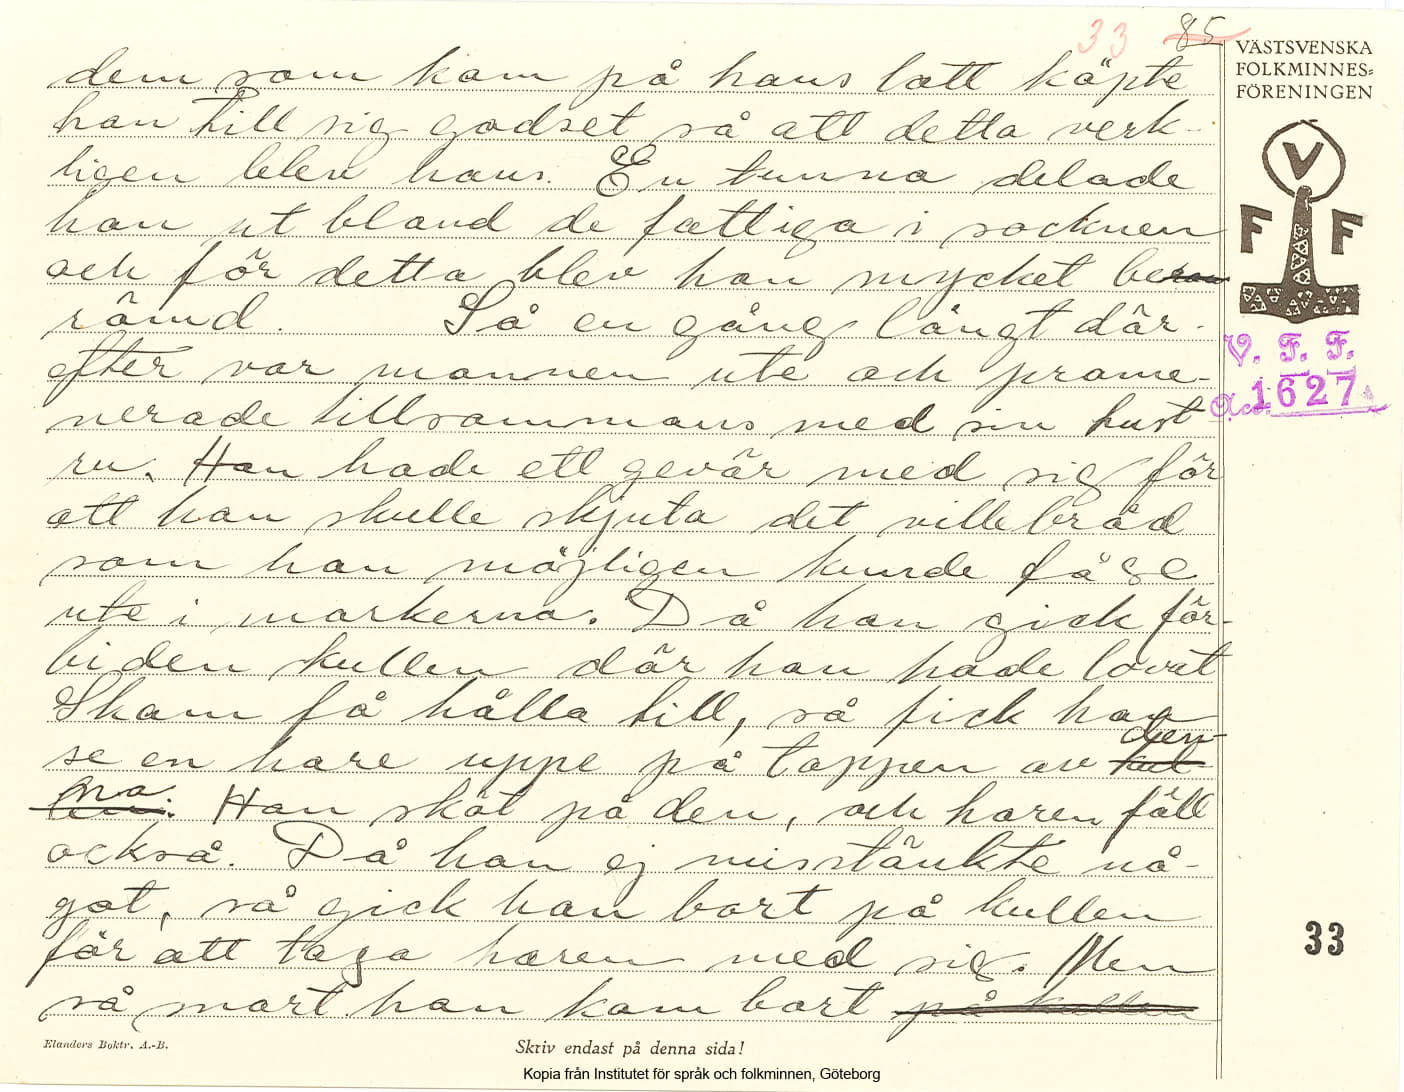 33 85
VÄSTSVENSKA
FOLKMINNES=
FÖRENINGEN
dem som kom på hans lott köpte
han till sig godset så att detta verk-
ligen blev hans. En tunna delade
han ut bland de fattiga i socknen
och för detta blev han mycket be
römd. Så en gång långt där-
efter var mannen ute och prome-
nerade tillsammans med sin hust
ru. Han hade ett gevär med sig för
att han skulle skjuta det villebråd
som han möjligen kunde få se
ute i markerna. Då han gick för-
bi den kullen där han hade lovat
Skam få hålla till, så fick han
se en hare uppe på toppen av den-
na. Han sköt på den, och haren föll
också. Då han ej misstänkte nå-
got, så gick han bort på kullen
för att taga haren med sig. Men
så snart han kom bort på kullen
V
F F
V. F. F.
Acc. 1627
33
Elanders Boktr. A.-B.
Skriv endast på denna sida!
Kopia från Institutet för språk och folkminnen, Göteborg